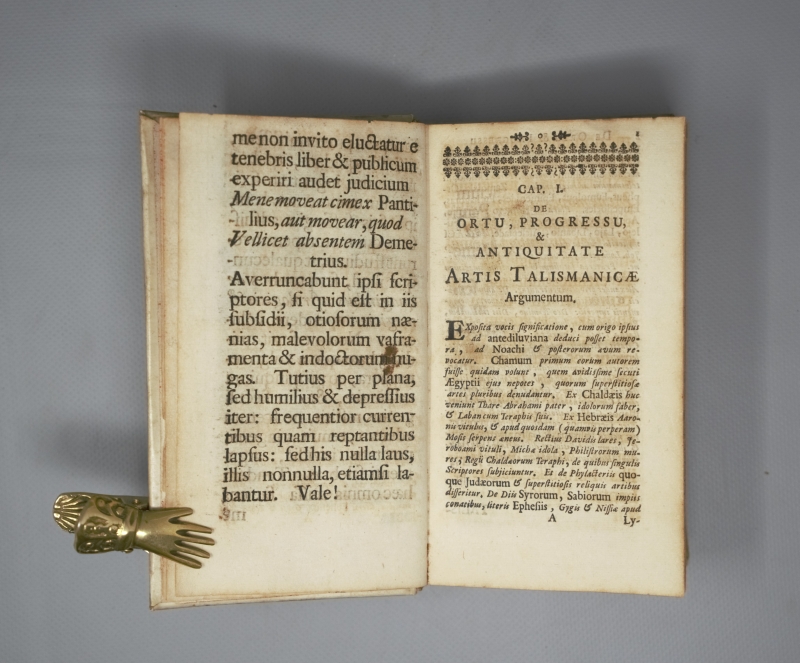 me non invito eluctatur e
tenebris liber & publicum
experiri audet judicium
Mene moveat cimex Panti-
lius, aut movear, quod
Vellicet absentem Deme-
trius.
Averruncabunt ipſi ſcri-
ptores, ſi quid eſt in iis
ſubſidii, otioſorum næ-
nias, malevolorum vafra-
menta & indoctorum nu-
gas. Tutius per plana,
ſed humilius & depreſſius
iter: frequentior curren-
tibus quam reptantibus
lapſus: ſed his nulla laus,
illis nonnulla, etiamſi la-
bantur. Vale!
0 1
CAP. I.
DE
ORTU, PROGRESSU,
&
ANTIQUITATE
ARTIS TALISMANICÆ
Argumentum.
EXpoſita vocis ſignificatione, cum origo ipſius
ad antediluviana deduci poſſet tempo-
ra, ad Noachi & poſterorum ævum re-
vocatur. Chamum primum eorum autorem
fuiſſe quidam volunt, quem avidiſſime ſecuti
Ægyptii ejus nepotes, quorum ſuperſtitioſæ
artes pluribus denudantur. Ex Chaldæis huc
veniunt Thare Abrahami pater, idolorum faber,
& Laban cum Teraphis ſuis. Ex Hebræis Aaro-
nis vitulus, & apud quoſdam (quamvis perperam)
Moſis ſerpens æneus. Rectius Davidis lares, Je-
roboami vituli, Michæ idola, Philiſtrorum mu-
res; Regis Chaldæorum Teraphi, de quibus ſinguli
Scriptores ſubjiciuntur. Et de Phylacteriis quo-
que Judæorum & ſuperſtitioſis reliquis artibus
diſſeritur. De Diis Syrorum, Sabiorum impiis
conatibus, literis Epheſiis, Gygis & Niſſiæ apud
A Ly-